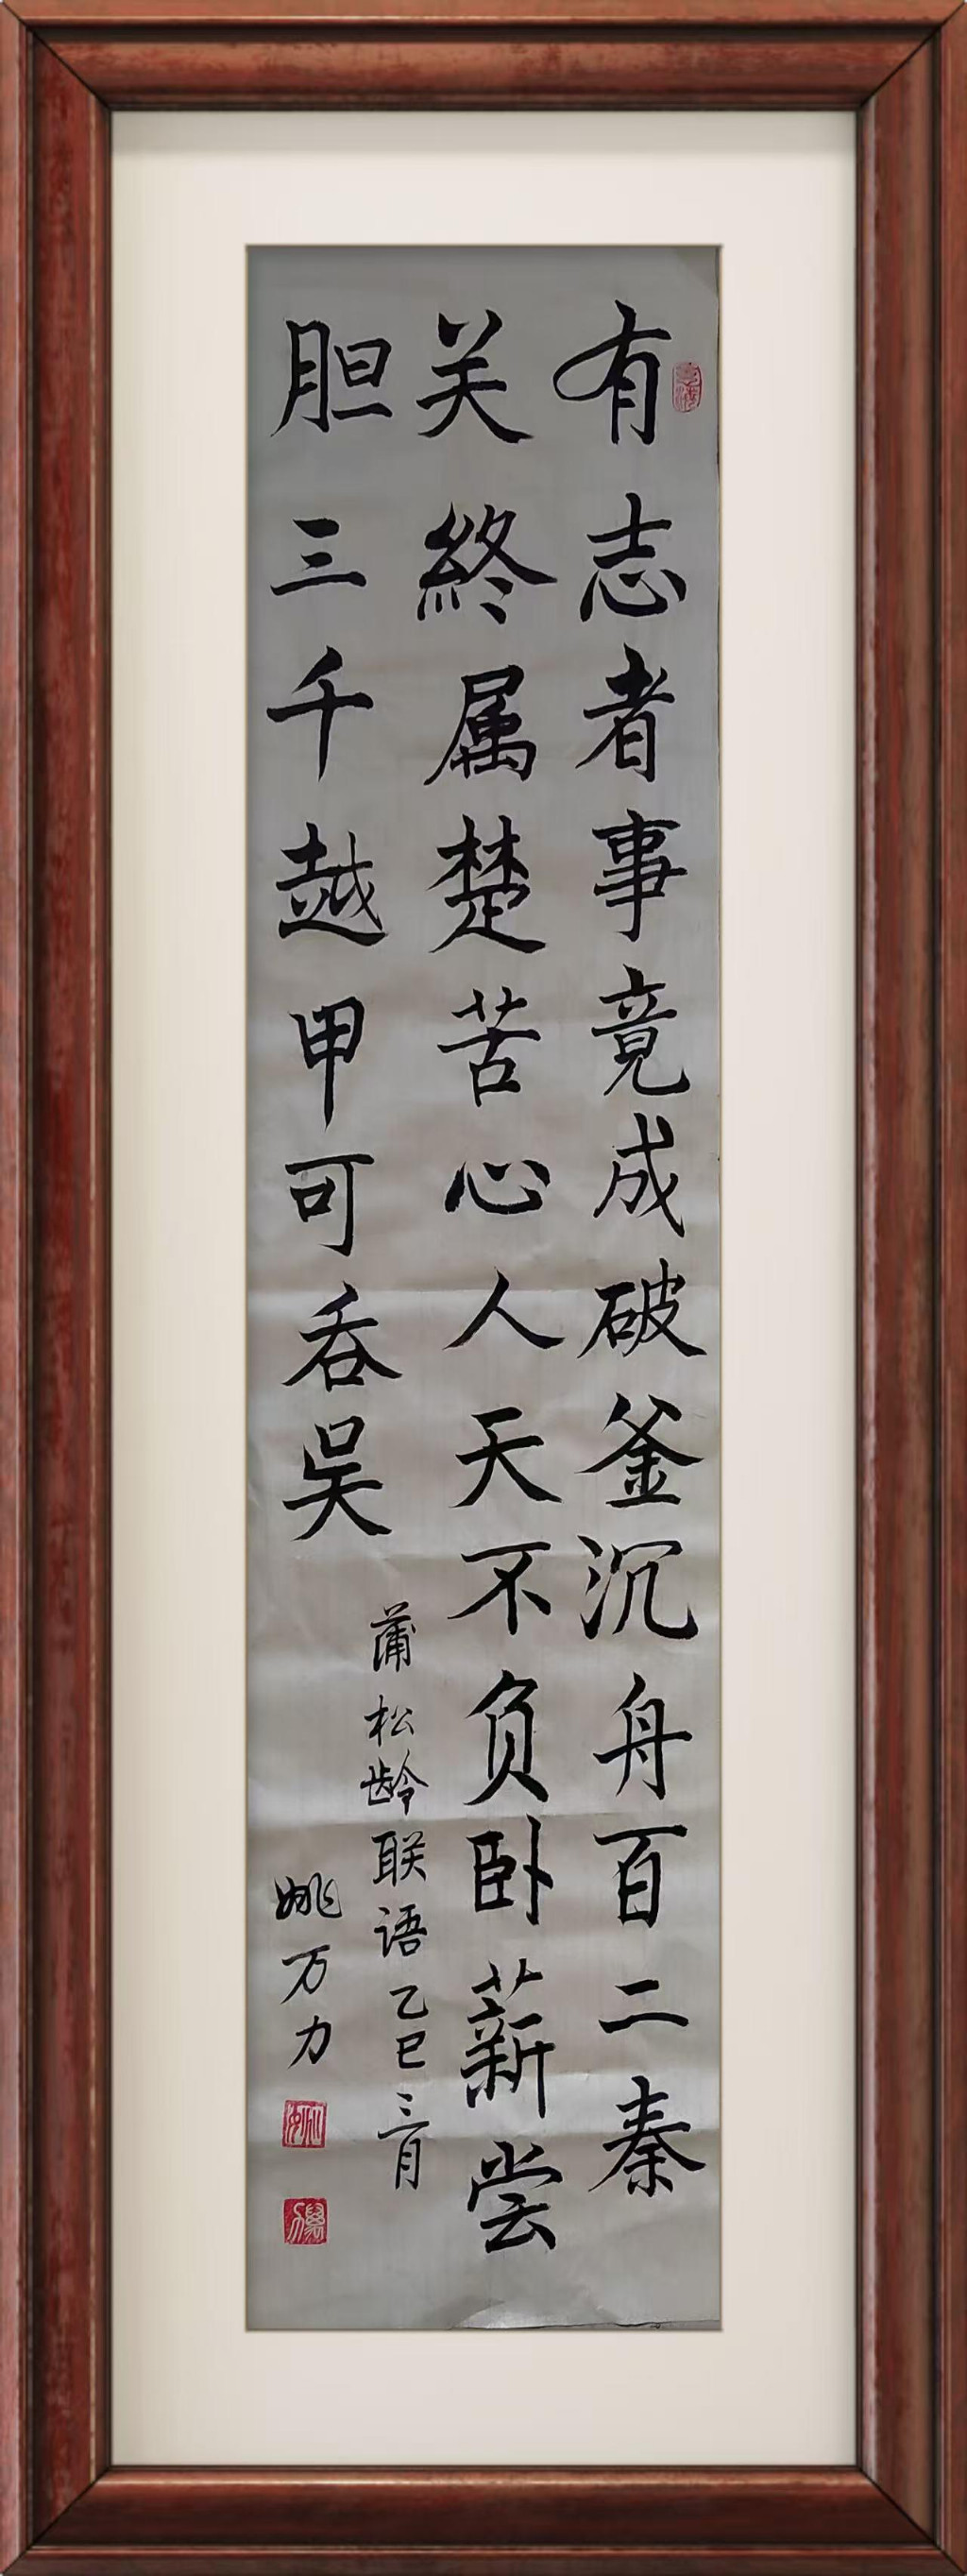 有志者事竟成破釜沉舟百二秦
关終属楚苦心人天不负卧薪尝
胆三千越甲可吞吴
蒲松龄联语乙巳三月
姚万力